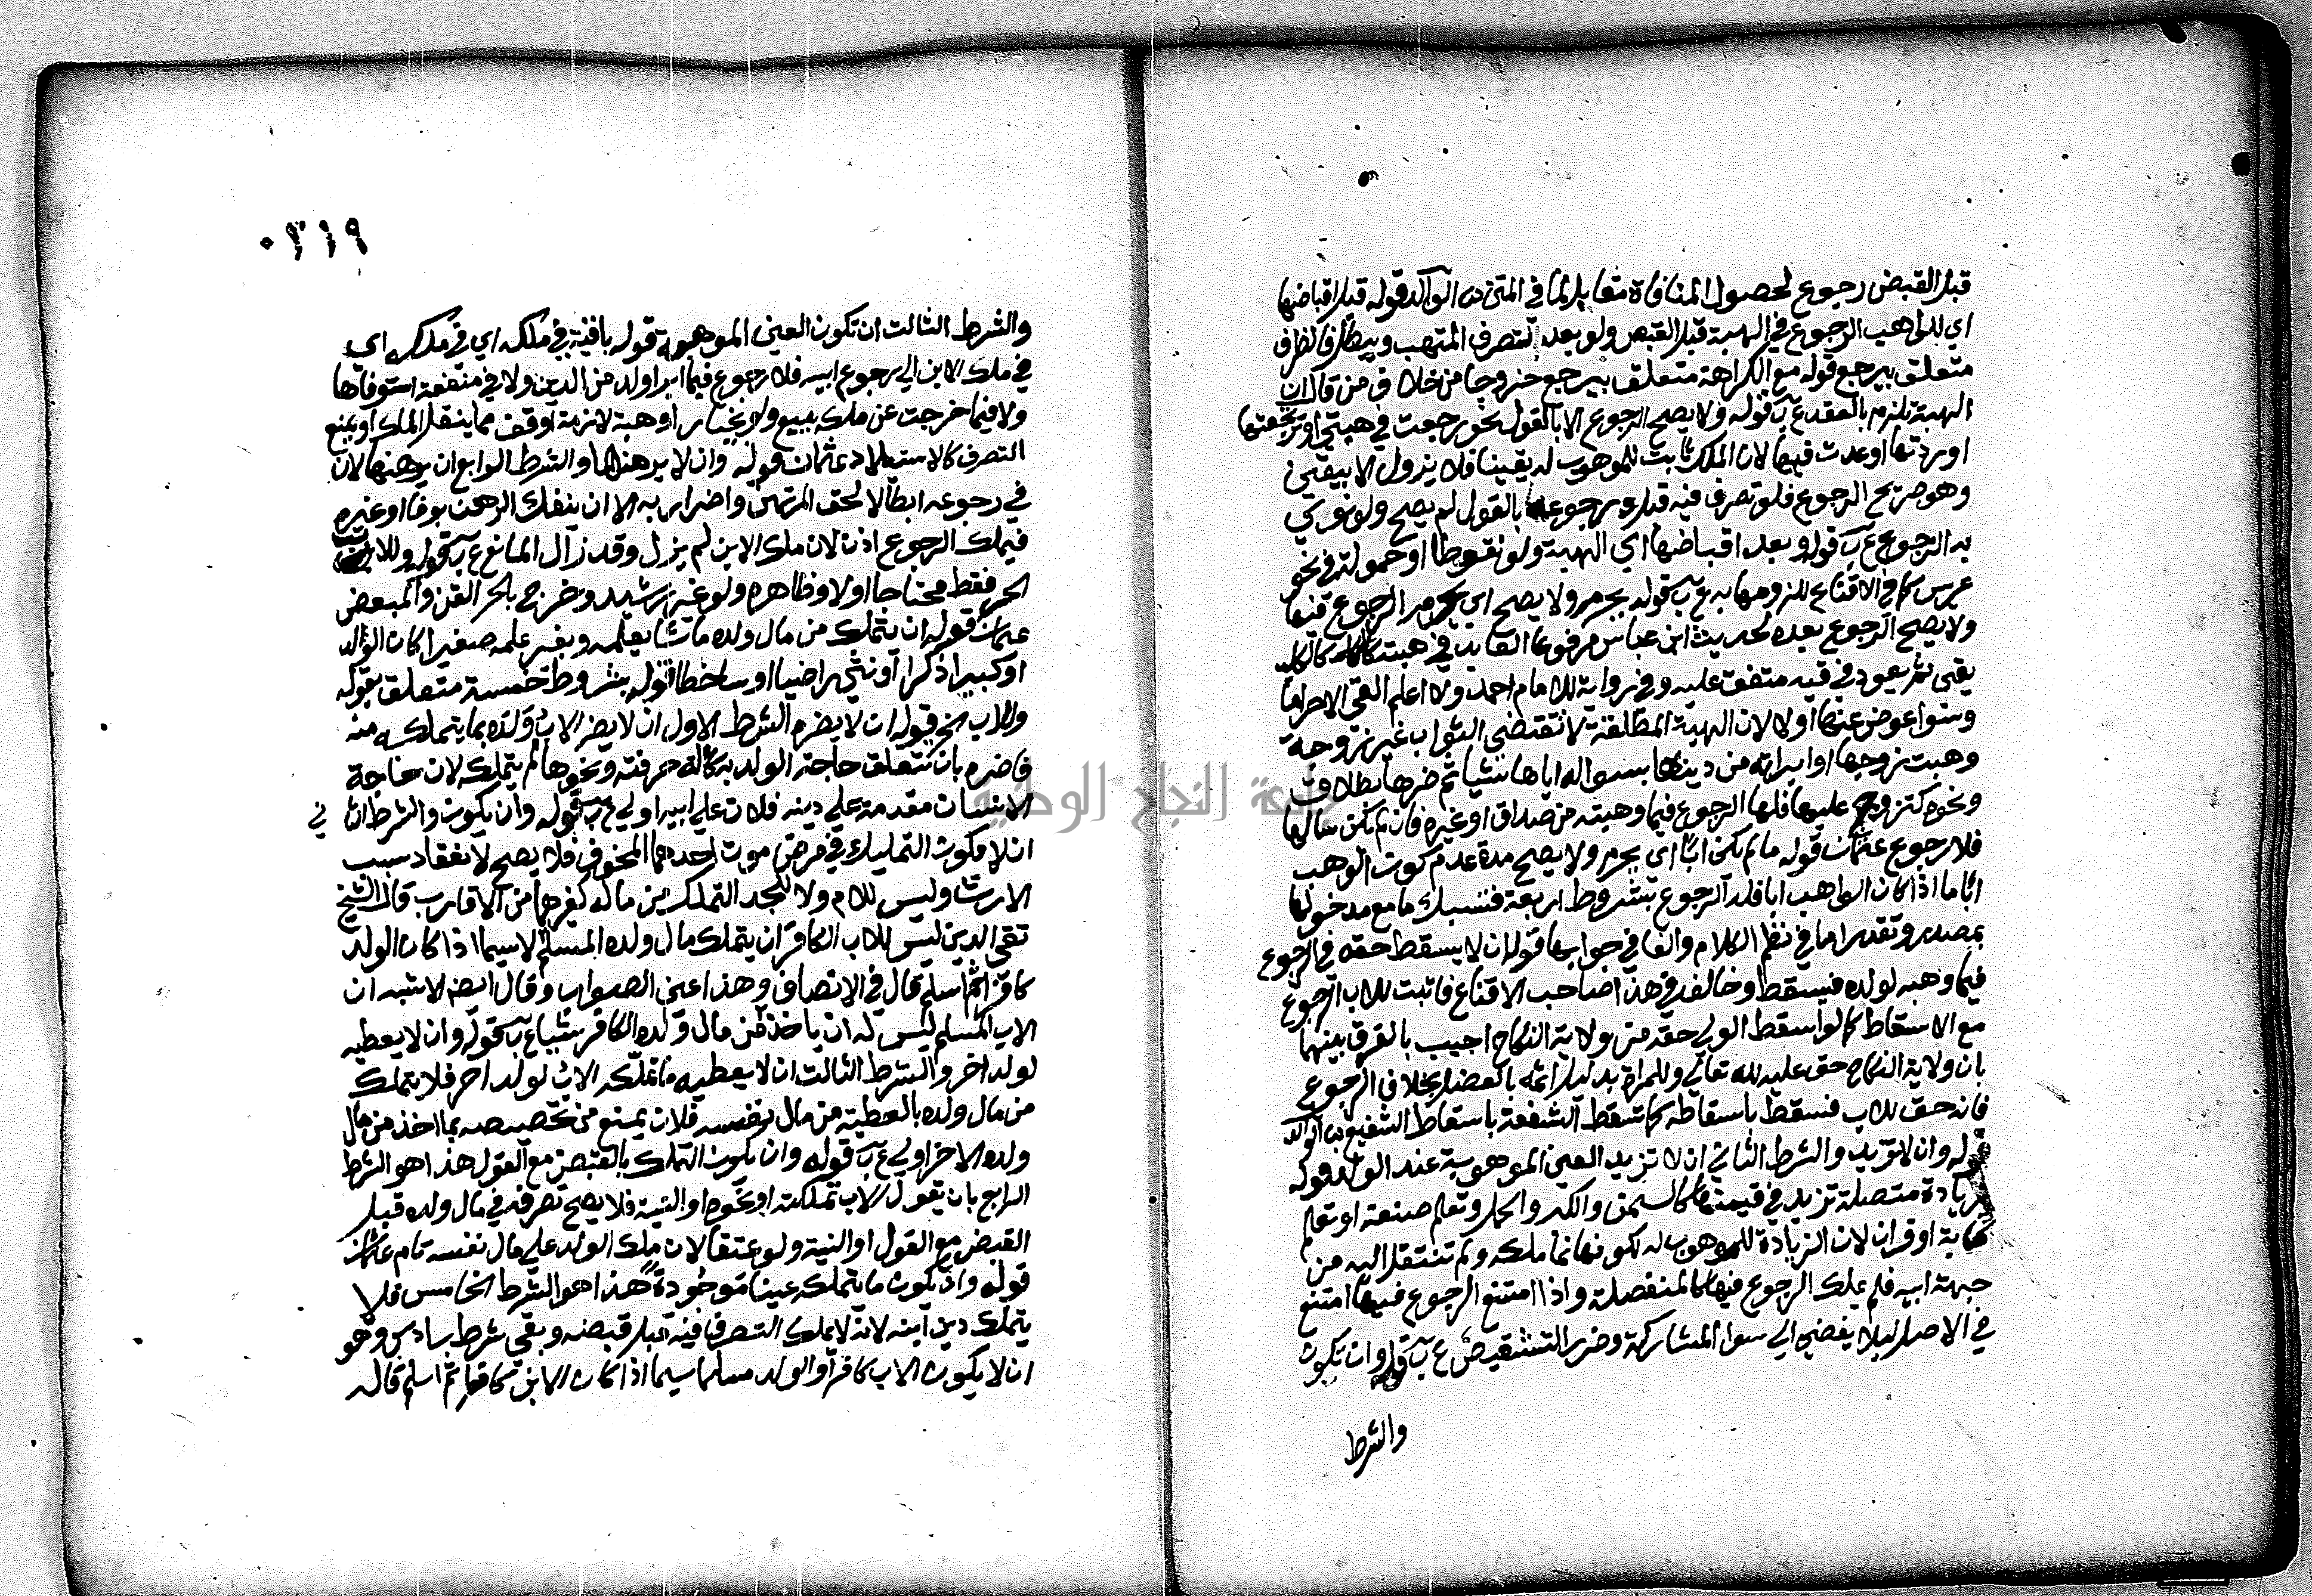 قبل القبض رجوع لحصول المنافاة متعا في المتن من الوالد قوله قبل اقباضها
اي للواهب الرجوع في الهبة قبل القبض ولو بعد تصرف المتهب ويبطل فالظرف
متعلق بيرجع قوله مع الكراهة متعلق بيرجع خروجا من خلاف من قال ان
الهبة تلزم بالعقد ع ب قوله ولا يصح الرجوع الا بالقول نحو رجعت في هبتي او ارتجعتها
او رددتها او عدت فيها لان الملك ثابت للموهوب له يقينا فلا يزول الا بيقين
وهو صريح الرجوع فلو تصرف فيه قبل رجوعه بالقول لم يصح ولو نوى
به الرجوع ع ب قوله وبعد اقباضها اي الهبة ولو نقوطا او حمولة في نحو
عرس كما في الاقناع للزومها به ع ب قوله يحرم ولا يصح اي يحرم الرجوع فيها
ولا يصح الرجوع بعده لحديث ابن عباس مرفوعا العايد في هبته كالكلب
يقئ ثم يعود في قيئه متفق عليه وفي رواية للامام احمد ولا اعلم القئ الا حراما
وسوا عوض عنها او لا لان الهبة المطلقة لا تقتضي الثواب غير زوجة
وهبت زوجها او ابراته من دينها بسواله اياها شيا ثم ضرها بطلاق
ونحوه كتزوج عليها فلها الرجوع فيما وهبته من صداق او غيره فان لم يكن سالها
فلا رجوع عثمان قوله ما لم يكن ابا اي يحرم ولا يصح مدة عدم كون الواهب
ابا اما اذا كان الواهب ابا فله الرجوع بشروط اربعة فتسبك ما مع مدخولها
بمصدر وتقدر اما في نظم الكلام والفا في جوابها قوله ان لا يسقط حقه في الرجوع
فيما وهبه لولده فيسقط وخالف في هذا صاحب الاقناع فاثبت للاب الرجوع
مع الاسقاط كما لو اسقط الولي حقه من ولاية النكاح اجيب بالفرق بينهما
بان ولاية النكاح حق عليه لله تعالى وللمراة بدليل اثمه بالعضل بخلاف الرجوع
فانه حق للاب فسقط باسقاطه كما تسقط الشفعة باسقاط الشفيع من الوالد
قوله وان لا تزيد والشرط الثاني ان لا تزيد العين الموهوبة عند الولد قوله
زيادة متصلة تزيد في قيمتها كالسمن والكبر والحمل وتعلم صنعة او تعلم
كتابة او قران لان الزيادة للموهوب له لكونها نما ملكه ولم تنتقل اليه من
جهة ابيه فلم يملك الرجوع فيها كالمنفصلة واذا امتنع الرجوع فيها امتنع
في الاصل ليلا يفضي الى سوا المشاركة وضرر التشقيص ع ب قوله وان تكون
والشرط
٠٣١٩
والشرط الثالث ان تكون العين الموهوبة قوله باقية في ملكه اي في ملكه اي
في ملك الابن الى رجوع ابيه فلا رجوع فيما ابرا ولده من الدين ولا في منفعة استوفاها
ولا فيما خرجت عن ملكه ببيع ولو بخيار او هبة لازمة او وقف مما ينقل الملك او يمنع
التصرف كالاستيلاد عثمان قوله وان لا يرهنها والشرط الرابع ان يرهنها لان
في رجوعه ابطالا لحق المرتهن واضرار به الا ان ينفك الرهن بوفا او غيره
فيملك الرجوع اذن لان ملك الابن لم يزل وقد زال المانع ع ب قوله وللاب
الحر فقط محتاجا او لا وظاهره ولو غير رشيد وخرج بالحر القن والمبعض
عثمان قوله ان يتملك من مال ولده ما شا بعلمه وبغير علمه صغيرا كان الولد
او كبيرا ذكرا او انثى راضيا او ساخطا قوله بشروط خمسة متعلق بقوله
وللاب الخ قوله ان لا يضره الشرط الاول ان لا يضر الاب ولده بما يتملكه منه
فان ضره بان تتعلق حاجة الولد به كالة حرفته ونحوها لم يتملكه لان حاجة
الانسان مقدمة على دينه فلان على ابيه اولى ع ب قوله وان يكون والشرط الثاني
ان لا يكون التمليك في مرض موت احدهما المخوف فلا يصح لانعقاد سبب
الارث وليس للام ولا للجد التملك من ماله كغيرهما من الاقارب قال الشيخ
تقي الدين ليس للاب الكافر ان يتملك مال ولده المسلم لاسيما اذا كان الولد
كافرا ثم اسلم قال في الانصاف وهذا عين الصواب وقال ايضا الاشبه ان
الاب المسلم ليس له ان ياخذ من مال ولده الكافر شيا ع ب قوله وان لا يعطيه
لولد اخر والشرط الثالث ان لا يعطيه ما تملكه الاب لولد اخر فلا يتملك
من مال ولده بالعطية من مال نفسه فلان يمنع من تخصيصه بما اخذ من مال
ولده الاخر اولى ع ب قوله وان يكون التملك بالقبض مع القول هذا هو الشرط
الرابع بان يقول الاب تملكته او نحوه او النية فلا يصح تصرفه في مال ولده قبل
القبض مع القول او النية ولو عتقا لان ملك الولد على مال نفسه تام عثمان
قوله وان يكون ما يتملك عينا موجودة هذا هو الشرط الخامس فلا
يتملك دين ابنه لانه لا يملك التصرف فيه قبل قبضه وبقي شرط سادس وهو
ان لا يكون الاب كافرا والولد مسلما سيما اذا كان الابن كافرا ثم اسلم قاله
جامعة النجاح الوطنية